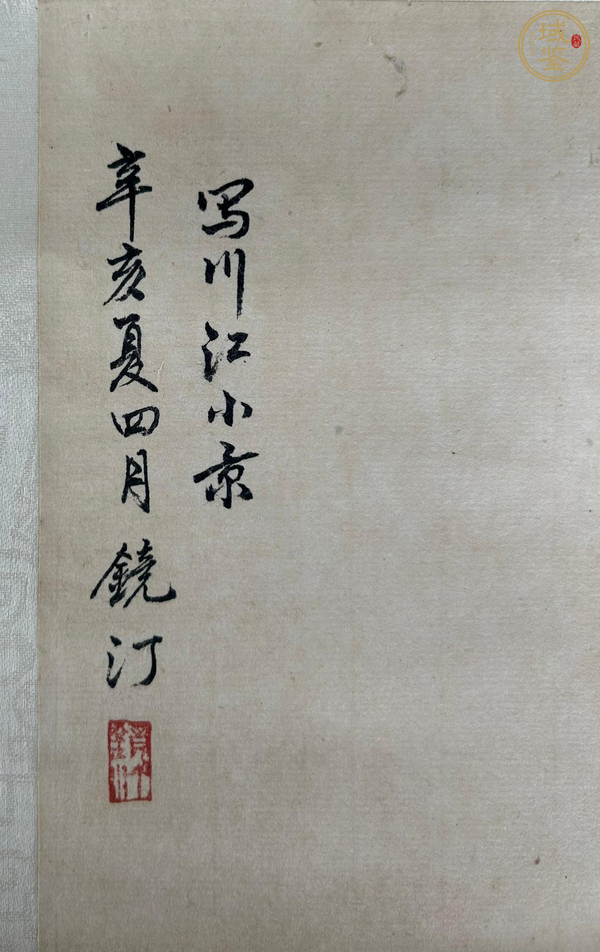 写川江小景
辛亥夏四月 鏡汀
鏡汀
域鉴